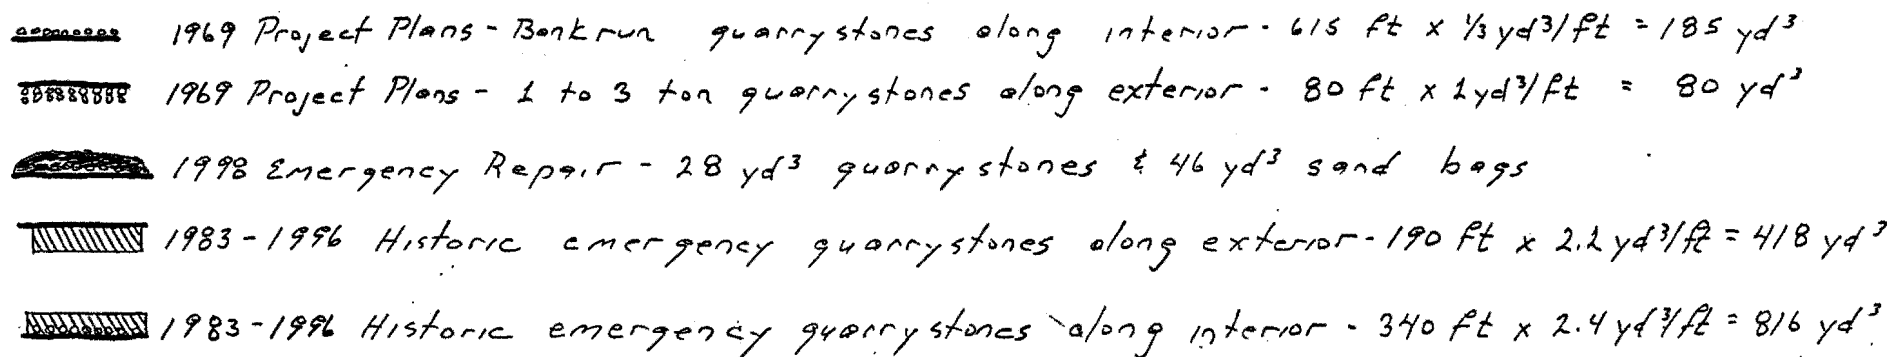 1969 Project Plans - Bankrun quarrystones along interior - 615 ft x 1/3 yd³/ft = 185 yd³
1969 Project Plans - 1 to 3 ton quarrystones along exterior - 80 ft x 1 yd³/ft = 80 yd³
1998 Emergency Repair - 28 yd³ quarrystones & 46 yd³ sand bags
1983-1996 Historic emergency quarrystones along exterior - 190 ft x 2.2 yd³/ft = 418 yd³
1983-1996 Historic emergency quarrystones along interior - 340 ft x 2.4 yd³/ft = 816 yd³